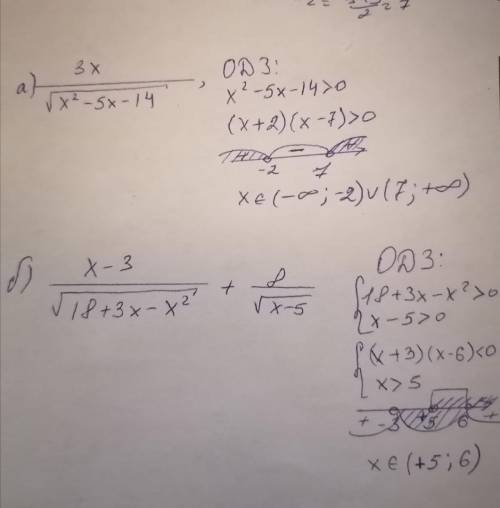 а) 3x / √(x² -5x -14) ,
ОДЗ:
x² -5x -14>0
(x+2)(x-7)>0
+ - +
-2 7
x∈(-∞; -2)∪(7; +∞)
б) x-3 / √(18+3x-x²) + 8 / √(x-5)
ОДЗ:
{18+3x-x²>0
{x-5>0
{(x+3)(x-6)<0
{x>5
+ -3 +5 6 +
x∈(+5; 6)